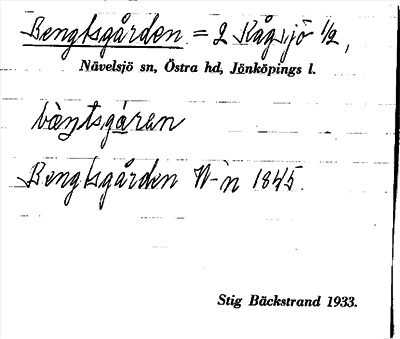 Bengtsgården = 2 Kågsjö 1/2,
Nävelsjö sn, Östra hd, Jönköpings l.
Bengtsgården W-n 1845.
Stig Bäckstrand 1933.